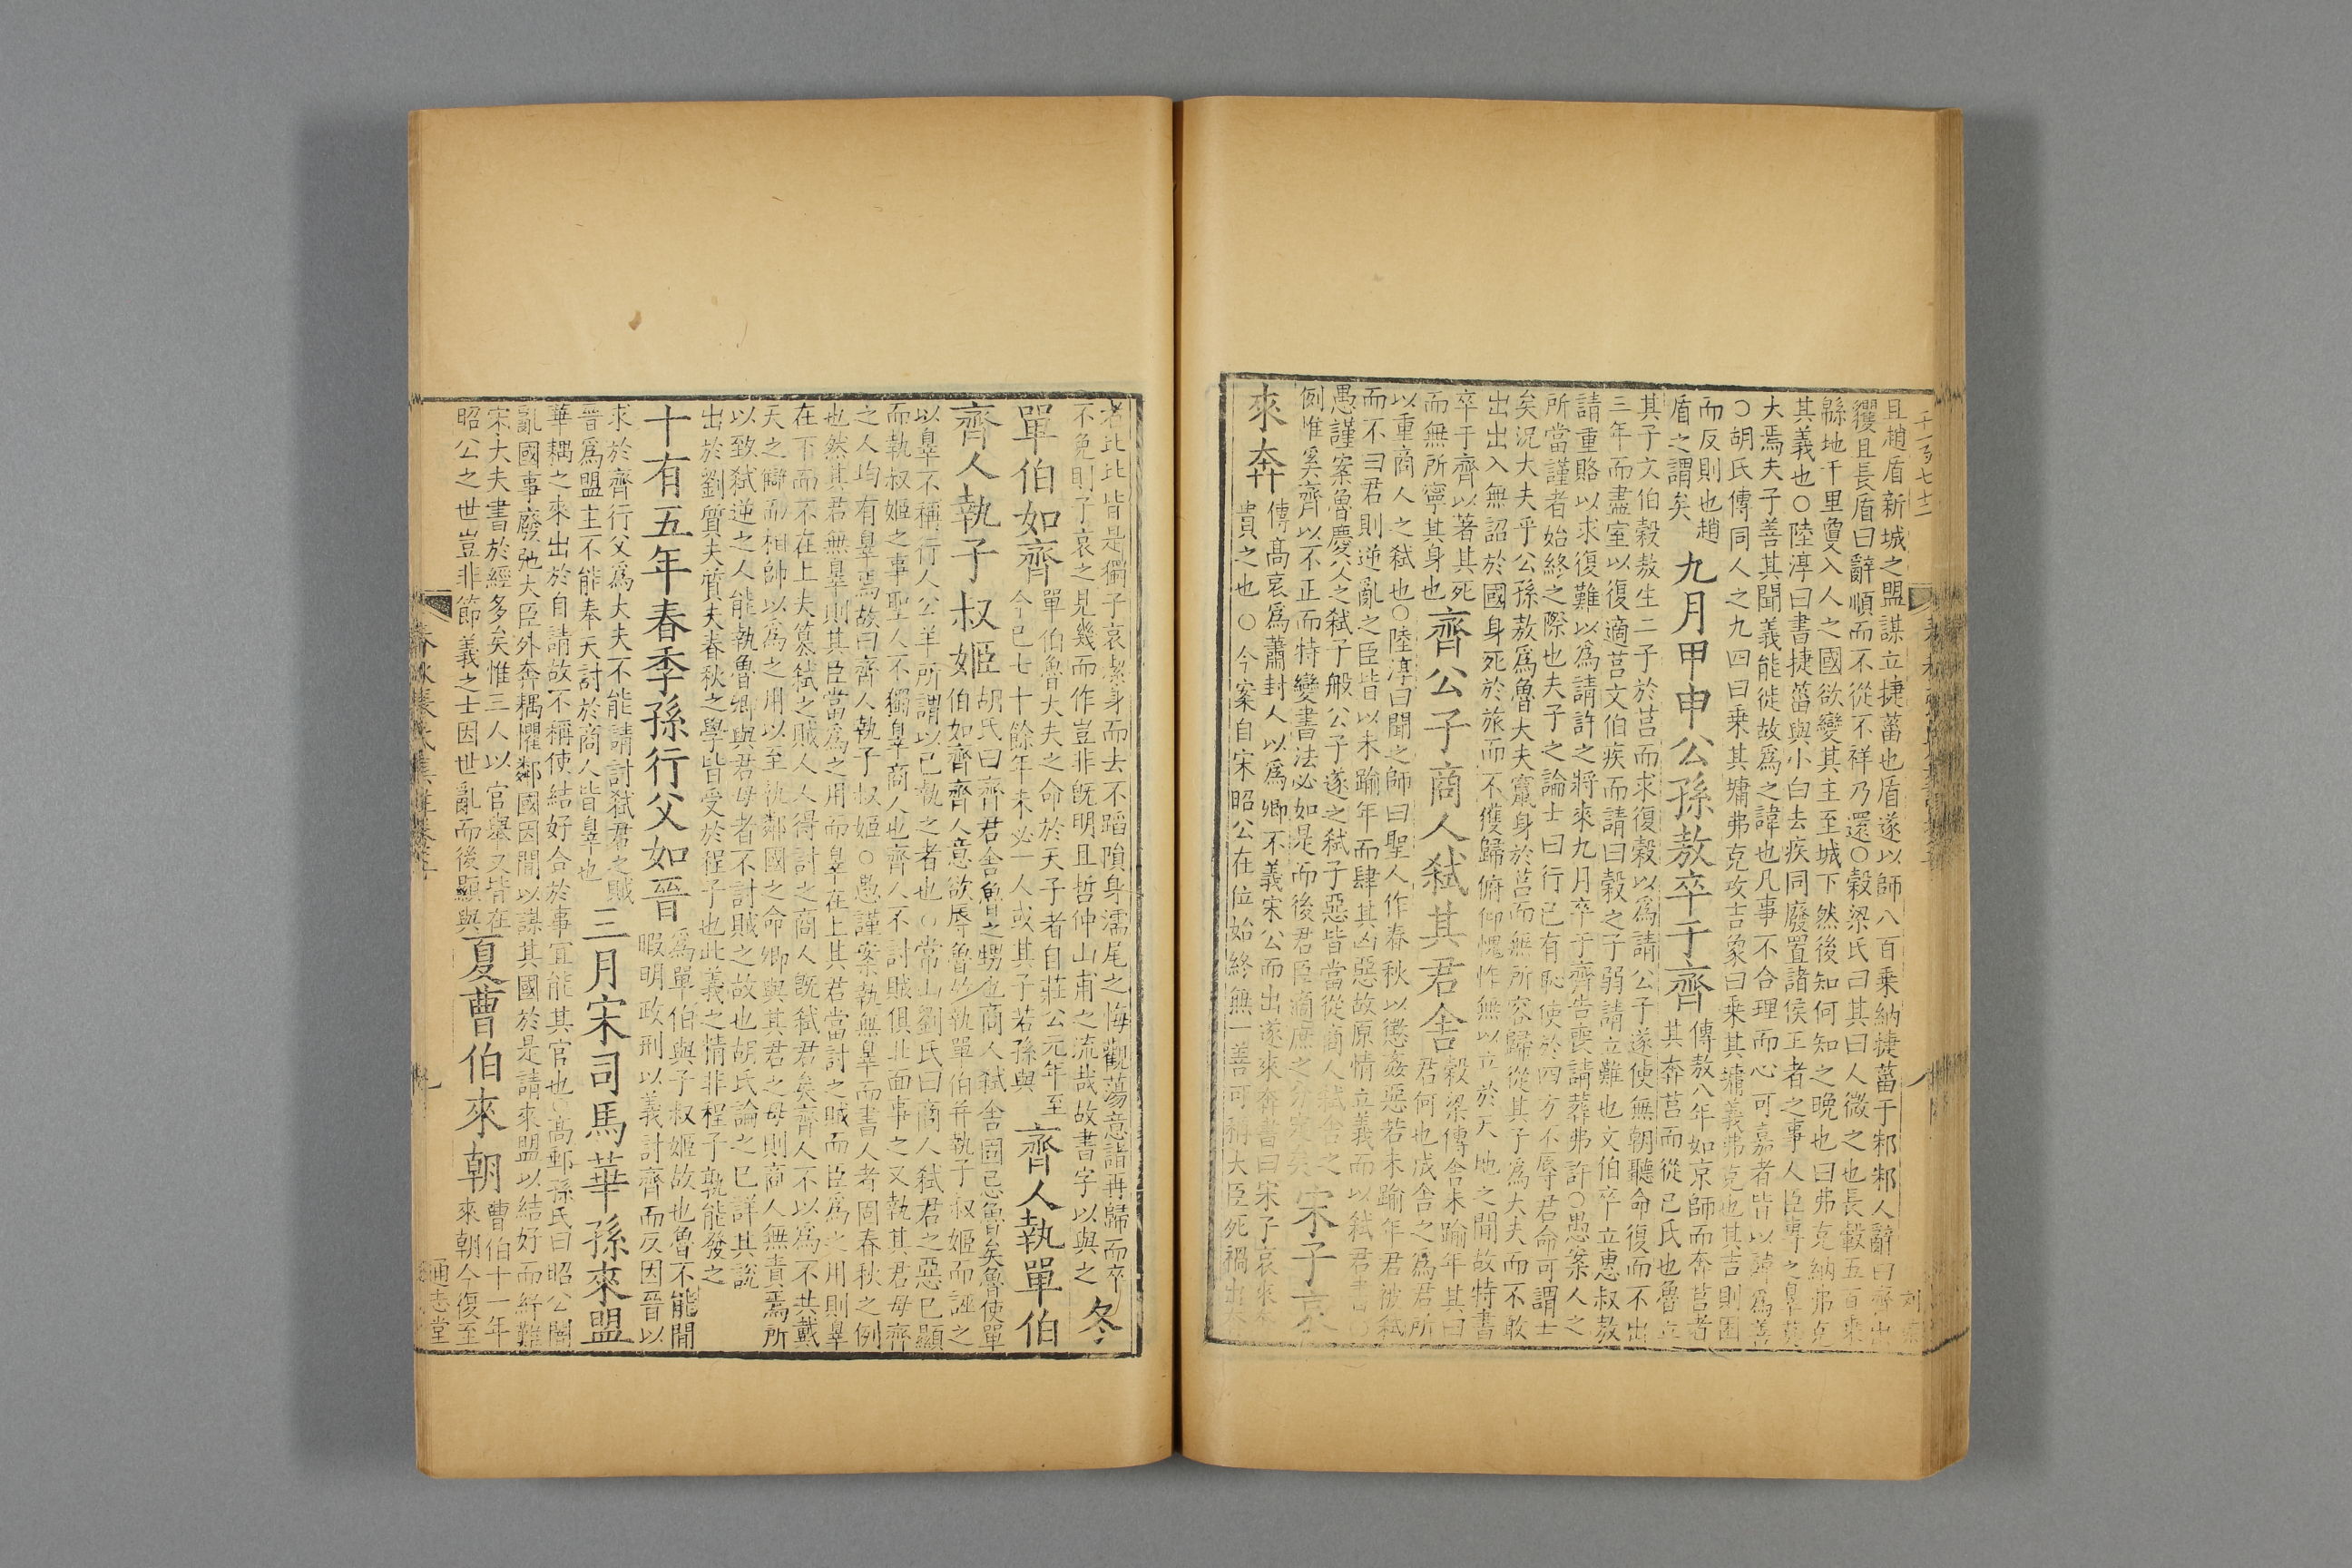 千一百七十二
且趙盾新城之盟謀立捷菑也盾遂以師八百乗納捷菑于邾邾人辭曰齊出
貜且長盾曰辭順而不從不祥乃還○榖梁氏曰其曰人微之也長轂五百乗
緜地千里敻入人之國欲變其主至城下然後知何知之晩也曰弗克納弗克
其義也○陸淳曰書捷菑與小白去疾同廢置諸侯王者之事人臣專之辠莫
大焉夫子善其聞義能徙故爲之諱也凡事不合理而心可嘉者皆以諱爲善
○胡氏傳同人之九四曰乗其墉弗克攻吉象曰乗其墉義弗克也其吉則困
而反則也趙
盾之謂矣
九月甲申公孫敖卒于齊
傳敖八年如京師而奔莒者
其奔莒而從已氏也魯立
其子文伯榖敖生二子於莒而求復榖以爲請公子遂使無朝聽命復而不出
三年而盡室以復適莒文伯疾而請曰榖之子弱請立難也文伯卒立惠叔敖
請重賂以求復難以爲請許之將來九月卒于齊告喪請葬弗許○愚案人之
所當謹者始終之際也夫子之論士曰行已有恥使於四方不辱君命可謂士
矣況大夫乎公孫敖爲魯大夫竄身於莒而無所容歸從其子爲大夫而不敢
出出入無詔於國身死於旅而不獲歸俯仰愧怍無以立於天地之間故特書
卒于齊以著其死
而無所寧其身也
齊公子商人弑其君舎
榖梁傳舎未踰年其曰
君何也成舎之爲君所
以重商人之弑也○陸淳曰聞之師曰聖人作春秋以懲姦惡若未踰年君被弑
而不曰君則逆亂之臣皆以未踰年而肆其凶惡故原情立義而以弑君書
愚謹案魯慶父之弑子般公子遂之弑子惡皆當從商人弑舎之
例惟奚齊以不正而特變書法必如是而後君臣適庶之分
宋子哀
來奔
傳髙哀爲蕭封人以爲卿不義宋公而出遂來奔書曰宋子哀來奔
貴之也○今案自宋昭公在位始終無一善可稱大臣死禍出
者比比皆是獨子哀潔身而去不蹈隕身濡尾之悔觀蕩意諸再歸而卒
不免則子哀之見幾而作豈非旣明且哲仲山甫之流哉故書字以與之
冬
單伯如齊
單伯魯大夫之命於天子者自莊公元年至
今已七十餘年未必一人或其子若孫與
齊人執單伯
齊人執子叔姬
胡氏曰齊君舎魯之甥也商人弑舎固忌魯矣魯使單
伯如齊齊人意欲辱魯故執單伯并執子叔姬而誣之
以辠不稱行人公羊所謂以已執之者也○常山劉氏曰商人弑君之惡已顯
而執叔姬之事聖人不獨辠商人也齊人不討賊俱北面事之又執其君母齊
之人均有辠焉故曰齊人執子叔姬○愚謹案執無辠而書人者固春秋之例
也然其君無辠則其臣當爲之用而辠在上其君當討之賊而臣爲之用則辠
在下而不在上夫簒弑之賊人人得討之商人旣弑君矣齊人不以爲不共戴
天之讎而相帥以爲之用以至執鄰國之命卿與其君之母則商人無責焉所
以致弑逆之人能執魯卿與君母者不討賊之故也胡氏論之已詳其說
出於劉質夫質夫春秋之學皆受於程子也此義之精非程子孰能發之
十有五年春季孫行父如晉
爲單伯與子叔姬故也魯不能閒
暇明政刑以義討齊而反因晉以
求於齊行父爲大夫不能請討弑君之賊
晉爲盟主不能奉天討於商人皆辠也
三月宋司馬華孫來盟
華耦之來出於自請故不稱使結好合於事宜能其官也○髙郵孫氏曰昭公闇
亂國事廢弛大臣外奔耦懼鄰國因閒以謀其國於是請來盟以結好而紓難
宋大夫書於經多矣惟三人以官舉又皆在
昭公之世豈非節義之士因世亂而後顯與
夏曹伯來朝
曹伯十一年
來朝今復至
通志堂